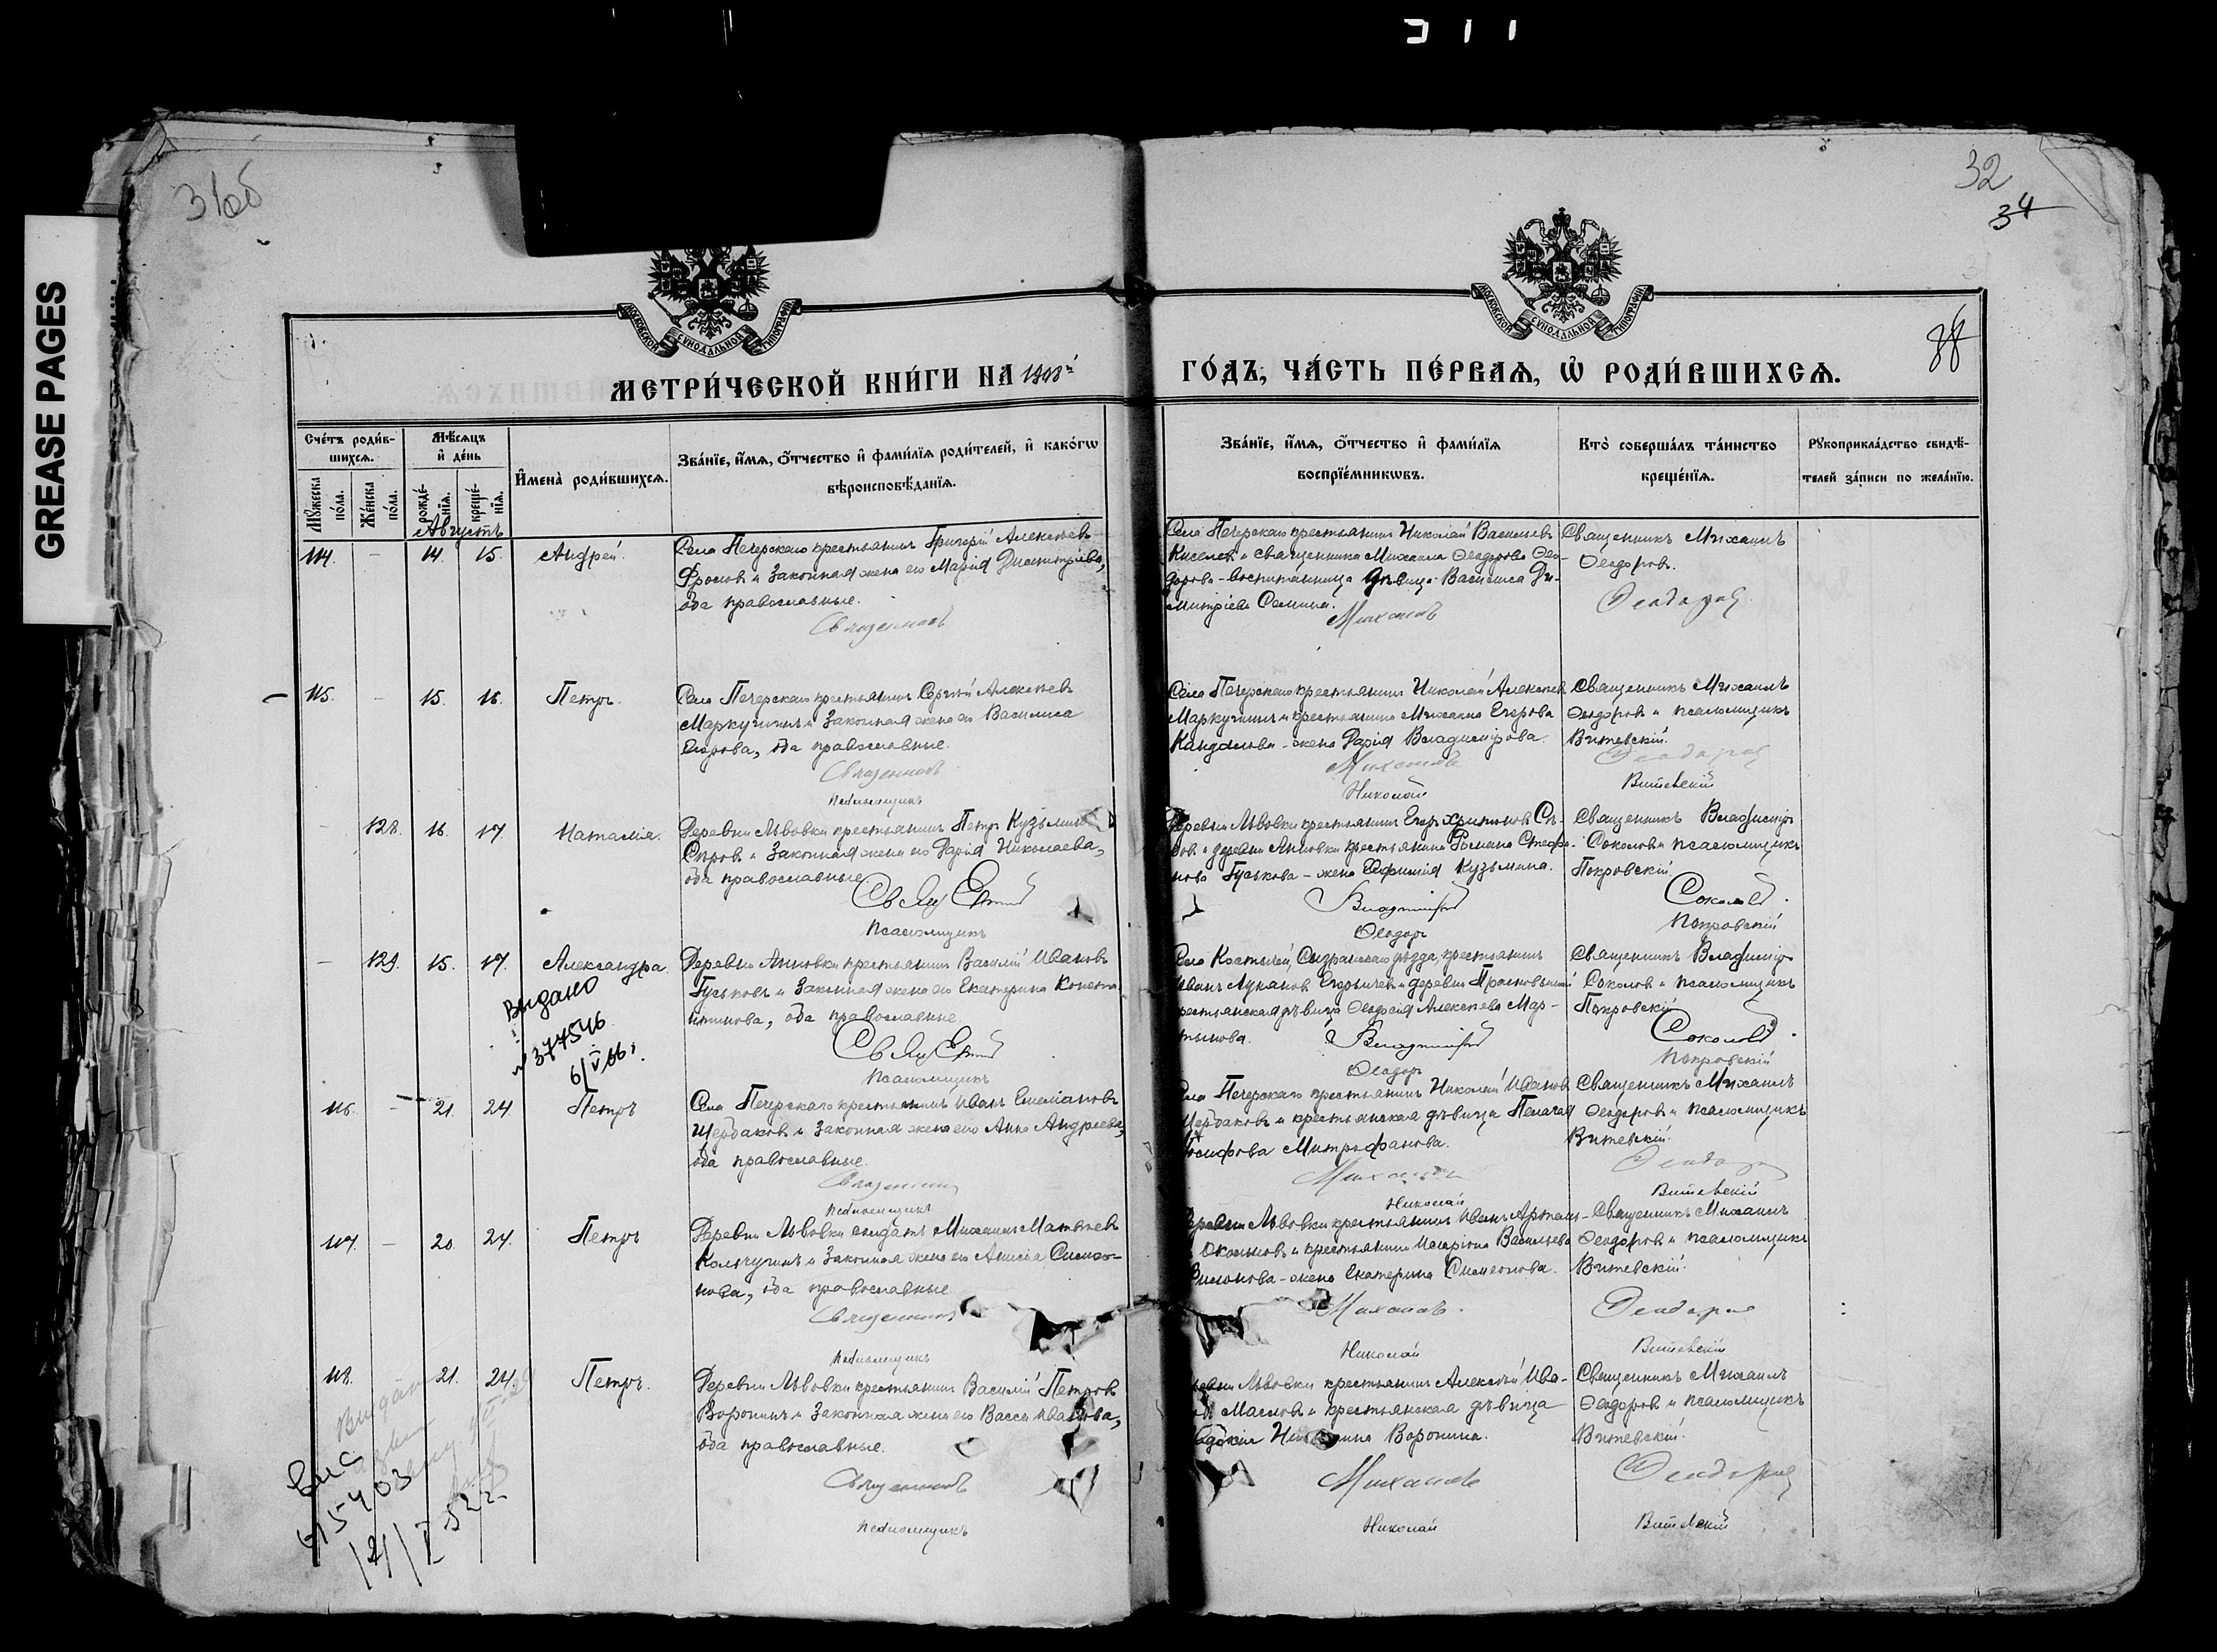 GREASE PAGES
31об
32
34
88
МОСКОВСКОЙ СѴНОДАЛЬНОЙ ТИПОГРАФІИ
МОСКОВСКОЙ СѴНОДАЛЬНОЙ ТИПОГРАФІИ
МЕТРИ́ЧЕСКОЙ КНИ́ГИ НА 1908й ГО́ДЪ, ЧА́СТЬ ПЕ́РВАЯ, Ѡ҆ РОДИ́ВШИХСЯ.
Сче́тъ роди́в-
шихся.
Мꙋ́жеска по́ла.
Же́нска по́ла.
Мѣ́сяцъ и҆ де́нь
рожде́-нїѧ.
креще́-нїѧ.
И҆мена̀ роди́вшихсѧ.
Зва́нїе, и҆́мѧ, ѻ҆́тчество и҆ фами́лїѧ роди́телей, и҆ како́гѡ
вѣроисповѣ́данїѧ.
Зва́нїе, и҆́мѧ, ѻ҆́тчество и҆ фами́лїѧ
воспрїе́мникѡвъ.
Кто̀ соверша́лъ та́инство
креще́нїѧ.
Рꙋкоприкла́дство свидѣ́-
телей за́писи по жела́нїю.
Августъ
114. – 14. 15. Андрей.
Села Печерскаго крестьянинъ Григорій Алексѣевъ
Фроловъ и законная жена его Марія Димитріева,
оба православные.
Священникъ
Села Печерскаго крестьянинъ Николай Васильевъ
Киселевъ и священника Михаила Ѳеодорова Ѳео-
дорова – воспитанница дѣвица Василиса Ди-
митріева Семина.
Михаилъ
Священникъ Михаилъ
Ѳеодоровъ.
Ѳеодоровъ
115. – 15. 16. Петръ.
Села Печерскаго крестьянинъ Сергѣй Алексѣевъ
Маркучинъ и законная жена его Василиса
Егорова, оба православные.
Священникъ
Псаломщикъ
Села Печерскаго крестьянинъ Николай Алексѣевъ
Маркучинъ и крестьянина Михаила Егорова
Кандалова – жена Дарія Владимірова.
Михаилъ
Николай
Священникъ Михаилъ
Ѳеодоровъ и псаломщикъ
Витевскій.
Ѳеодоровъ
Витевскій
– 128. 16. 17. Наталія.
Деревни Львовки крестьянинъ Петръ Кузьминъ
и законная жена его Дарія Николаева,
оба православные.
Священникъ
Псаломщикъ
Деревни Львовки крестьянинъ Егоръ
и деревни Анновки крестьянина Романа Стефа-
нова Гуськова – жена Евфимія Кузьмина.
Владиміръ
Ѳеодоръ
Священникъ Владиміръ
Соколовъ и псаломщикъ
Покровскій.
Соколовъ.
Покровскій
– 129. 15. 17. Александра.
Выдано
№ 377546
6/V 66 г.
Деревни Анновки крестьянинъ Василій Ивановъ
Гуськовъ и законная жена его Екатерина Конста-
нтинова, оба православные.
Священникъ
Псаломщикъ
Села Костычей, Сызранскаго уѣзда, крестьянинъ
Иванъ Егорычевъ и деревни
крестьянская дѣвица Ѳеодосія Алексѣева Мар-
тынова.
Владиміръ
Ѳеодоръ
Священникъ Владиміръ
Соколовъ и псаломщикъ
Покровскій.
Соколовъ.
Покровскій
116. – 21. 24 Петръ
Села Печерскаго крестьянинъ Иванъ Емеліановъ
Щербаковъ и законная жена его Анна Андреева,
оба православные.
Священникъ
Псаломщикъ
Села Печерскаго крестьянинъ Николай Ивановъ
Щербаковъ и крестьянская дѣвица Пелагея
Іосифова Митрофанова.
Михаилъ
Николай
Священникъ Михаилъ
Ѳеодоровъ и псаломщикъ
Витевскій.
Ѳеодоровъ
Витевскій
117. – 20. 24. Петръ
Деревни Львовки солдатъ Михаилъ Матвѣевъ
Кольчугинъ и законная жена его Анисія Симео-
нова, оба православные.
Священникъ
Псаломщикъ
Деревни Львовки крестьянинъ Иванъ
и крестьянина Иларіона Васильева
– жена Екатерина Симеонова.
Михаилъ.
Николай
Священникъ Михаилъ
Ѳеодоровъ и псаломщикъ
Витевскій.
Ѳеодоровъ
Витевскій
118. 21. 24. Петръ.
Деревни Львовки крестьянинъ Василій Петровъ
Воронинъ и законная жена его Васса Иванова,
оба православные.
Священникъ
Псаломщикъ
Деревни Львовки крестьянинъ Алексѣй Ива-
новъ Масловъ и крестьянская дѣвица
Воронина.
Михаилъ
Николай
Священникъ Михаилъ
Ѳеодоровъ и псаломщикъ
Витевскій.
Ѳеодоровъ
Витевскій